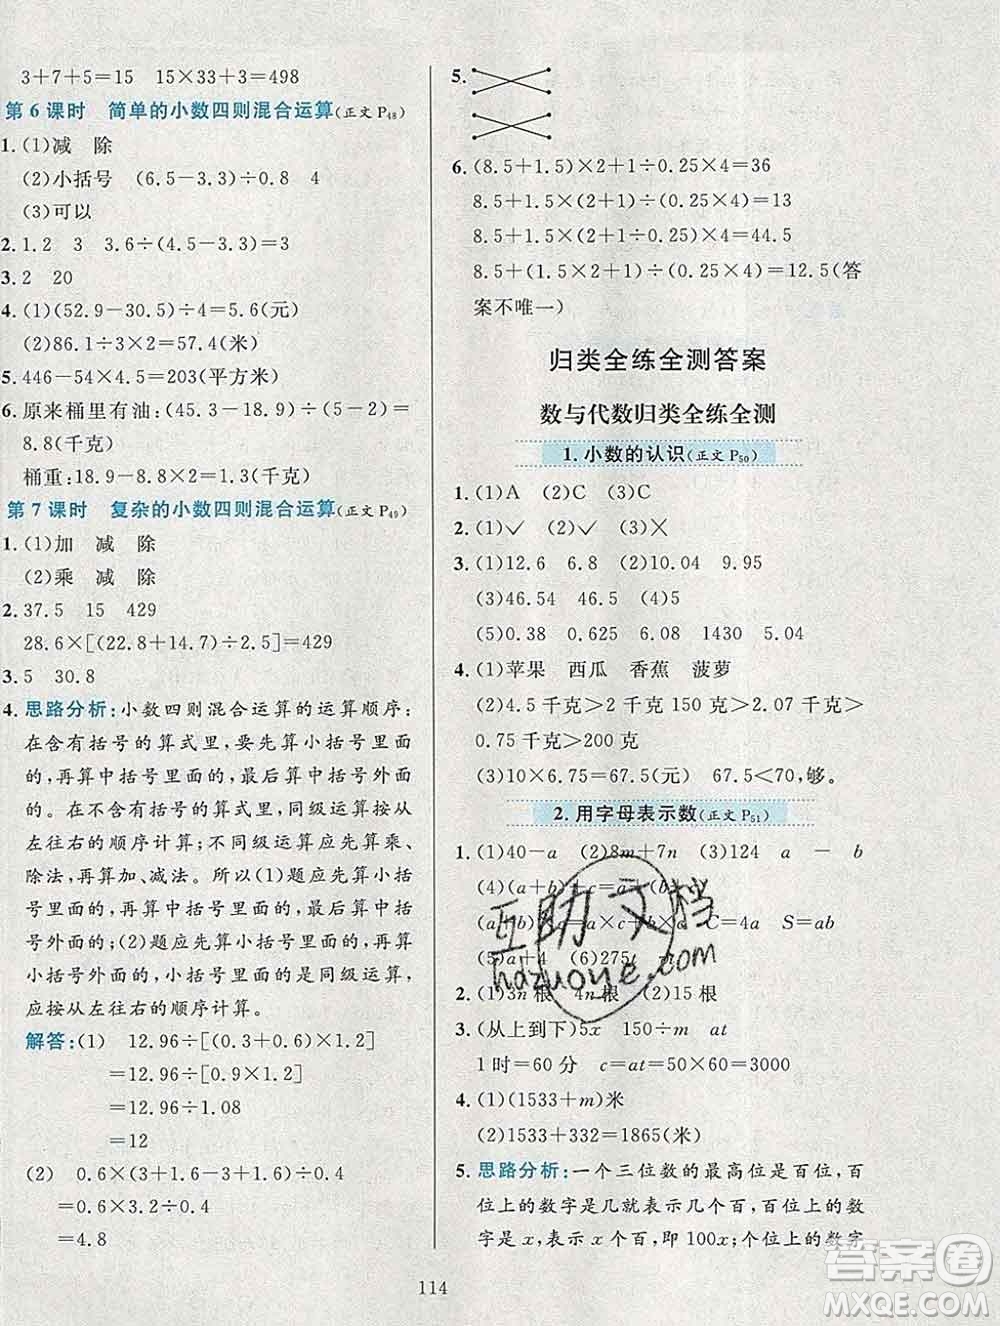 3+7+5=15　15×33+3=498
第 6 课时　简单的小数四则混合运算(正文 P48)
1. (1)减　除
(2)小括号　(6.5-3.3)÷0.8　4
(3)可以
2. 1.2　3　3.6÷(4.5-3.3)=3
3. 2　20
4. (1)(52.9-30.5)÷4=5.6(元)
(2)86.1÷3×2=57.4(米)
5. 446-54×4.5=203(平方米)
6. 原来桶里有油:(45.3-18.9)÷(5-2)=
8.8(千克)
桶重:18.9-8.8×2=1.3(千克)
第 7 课时　复杂的小数四则混合运算(正文 P49)
1. (1)加　减　除
(2)乘　减　除
2. 37.5　15　429
28.6×[(22.8+14.7)÷2.5]=429
3. 5　30.8
4. 思路分析:小数四则混合运算的运算顺序:
在含有括号的算式里,要先算小括号里面
的,再算中括号里面的,最后算中括号外面
的。在不含有括号的算式里,同级运算从
左往右的顺序计算;不同级运算应先算乘、
除法,再算加、减法。所以(1)题应先算小括
号里面的,再算中括号里面的,最后算中括
号外面的;(2)题应先算小括号里面的,再
算小括号外面的,小括号外面的是同级运算,
应按从左往右的顺序计算。
解答:(1)　12.96÷[(0.3+0.6)×1.2]
=12.96÷[0.9×1.2]
=12.96÷1.08
=12
(2)　0.6×(3+1.6-1.6+1.6)÷0.4
=0.6×3.2÷0.4
=4.8
5.
6. (8.5+1.5)×2+1÷0.25×4=36
8.5+1.5×(2+1)÷(0.25×4)=13
8.5+1.5×(2+1)÷0.25×4=44.5
8.5+(1.5×2+1)÷(0.25×4)=12.5(答
案不唯一)
归类全练全测答案
数与代数归类全练全测
1. 小数的认识(正文 P50)
1. (1)A　(2)C　(3)C
2. (1)✓　(2)✓　(3)✕
3. (1)12.6　6.8　(2)10.04　9.95
(3)46.54　46.5　(4)5
(5)0.38　0.625　1430　5.04
4. (1)苹果　西瓜　香蕉　菠萝
(2)4.5 千克>2 千克 150 克>2.07 千克>
0.75 千克>200 克
(3)10×6.75=67.5(元)　67.5<70,够。
2. 用字母表示数(正文 P51)
1. (1)40-a　(2)8m+7n　(3)124　a　-　b
(4)(a+b)+c=a+(b+c)
(a×b)×c=a×(b×c)　C=4a　S=ab
(5)4a　(6)275
2. (1)3n 根　4n 根　(2)15 根
3. (从上到下)5x　150÷m　at
1 时=60 分　c=at=50×60=3000
4. (1)(1533+m)米
(2)1533+332=1865(米)
5. 思路分析:一个三位数的最高位是百位,百
位上的数字是几就表示几个百,百位上的数
字是 x,表示 x 个百,即 100x;个位上的数字
互助文档
hazuoye.com
114
答案圈
MXQE.COM